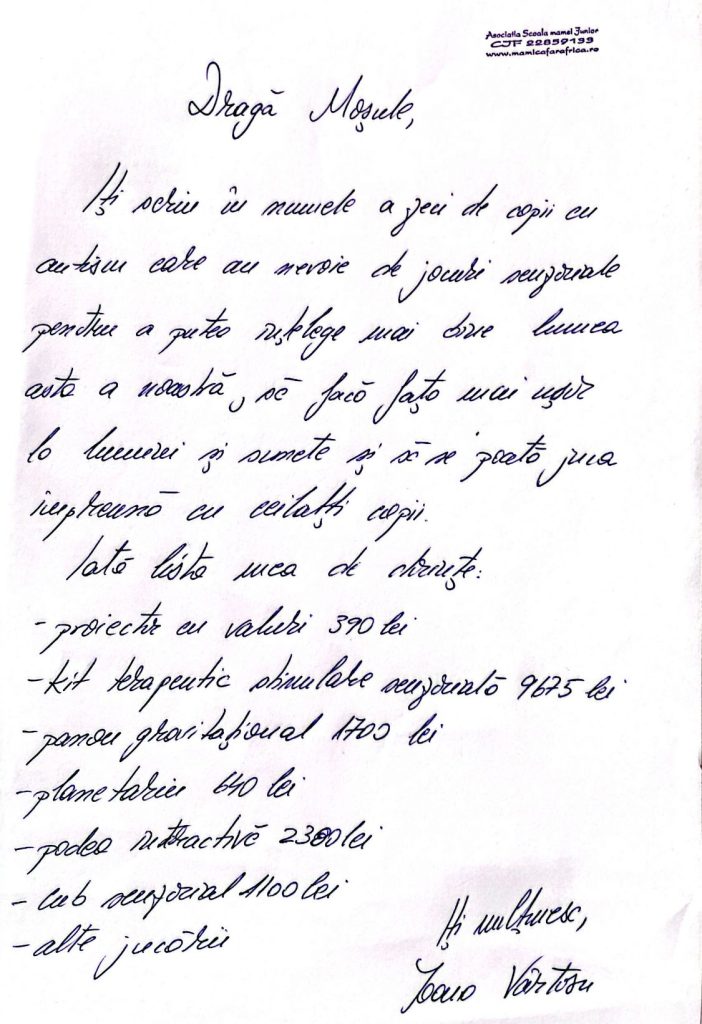 Asociatia Scoala mamei Junior
CIF 22859133
www.mamicafarafrica.ro
Dragă Moșule,
Iți scriu în numele a zeci de copii cu
autism care au nevoie de jocuri senzoriale
pentru a putea înțelege mai bine lumea
asta a noastră, să facă față mai ușor
la lumini și sunete și să se poată juca
împreună cu ceilalți copii.
Iată lista mea de dorințe:
- proiector cu valuri 390 lei
- kit terapeutic stimulare senzorială 9675 lei
- panou gravitațional 1700 lei
- planetariu 640 lei
- podea interactivă 2300 lei
- cub senzorial 1100 lei
- alte jucării
Iți mulțumesc,
Ioana Vârtosu